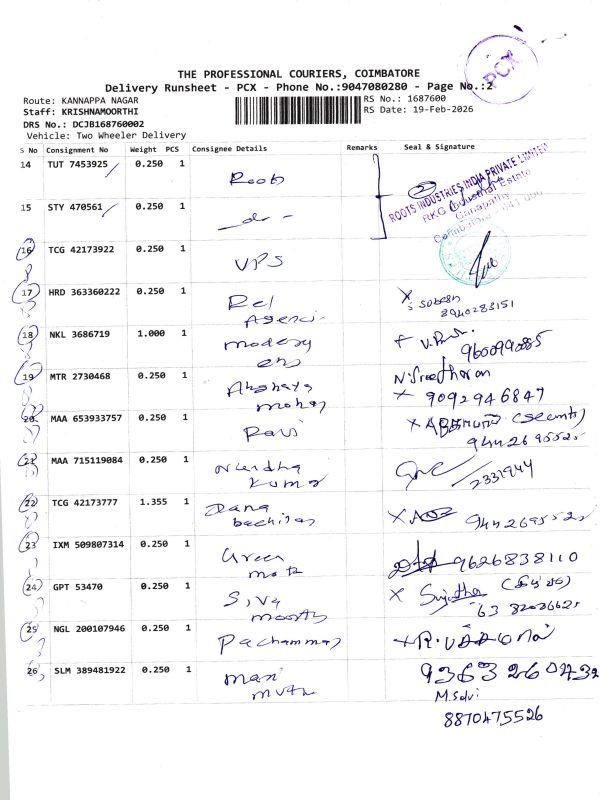 PCX
THE PROFESSIONAL COURIERS, COIMBATORE
Delivery Runsheet - PCX - Phone No.:9047080280 - Page No.:2
Route: KANNAPPA NAGAR
RS No.: 1687600
Staff: KRISHNAMOORTHI
RS Date: 19-Feb-2026
DRS No.: DCJB168760002
Vehicle: Two Wheeler Delivery
S No Consignment No Weight PCS Consignee Details Remarks Seal & Signature
14 TUT 7453925 0.250 1 Roots
ROOTS INDUSTRIES INDIA PRIVATE LIMITED
RKG Industrial Estate
Ganapathy
Coimbatore - 641 006
15 STY 470561 0.250 1 - do -
16 TCG 42173922 0.250 1 VPS
17 HRD 363360222 0.250 1 Rel
Agenci
X
8940283151
18 NKL 3686719 1.000 1 modern
ens
9600990885
19 MTR 2730468 0.250 1 Akshaya
mohan
N. Sreetharan
X 9092946847
20 MAA 653933757 0.250 1 Ravi
X (Security)
9442695525
21 MAA 715119084 0.250 1 Nandha
Kumar
2331944
22 TCG 42173777 1.355 1 Dana
X 9442695525
23 IXM 509807314 0.250 1 Green
9626838110
24 GPT 53470 0.250 1 Siva
moorthy
X Sujatha
6382026625
25 NGL 200107946 0.250 1 Pachammay
26 SLM 389481922 0.250 1 mari
muthu
9363260432
M. Selvi
8870475526